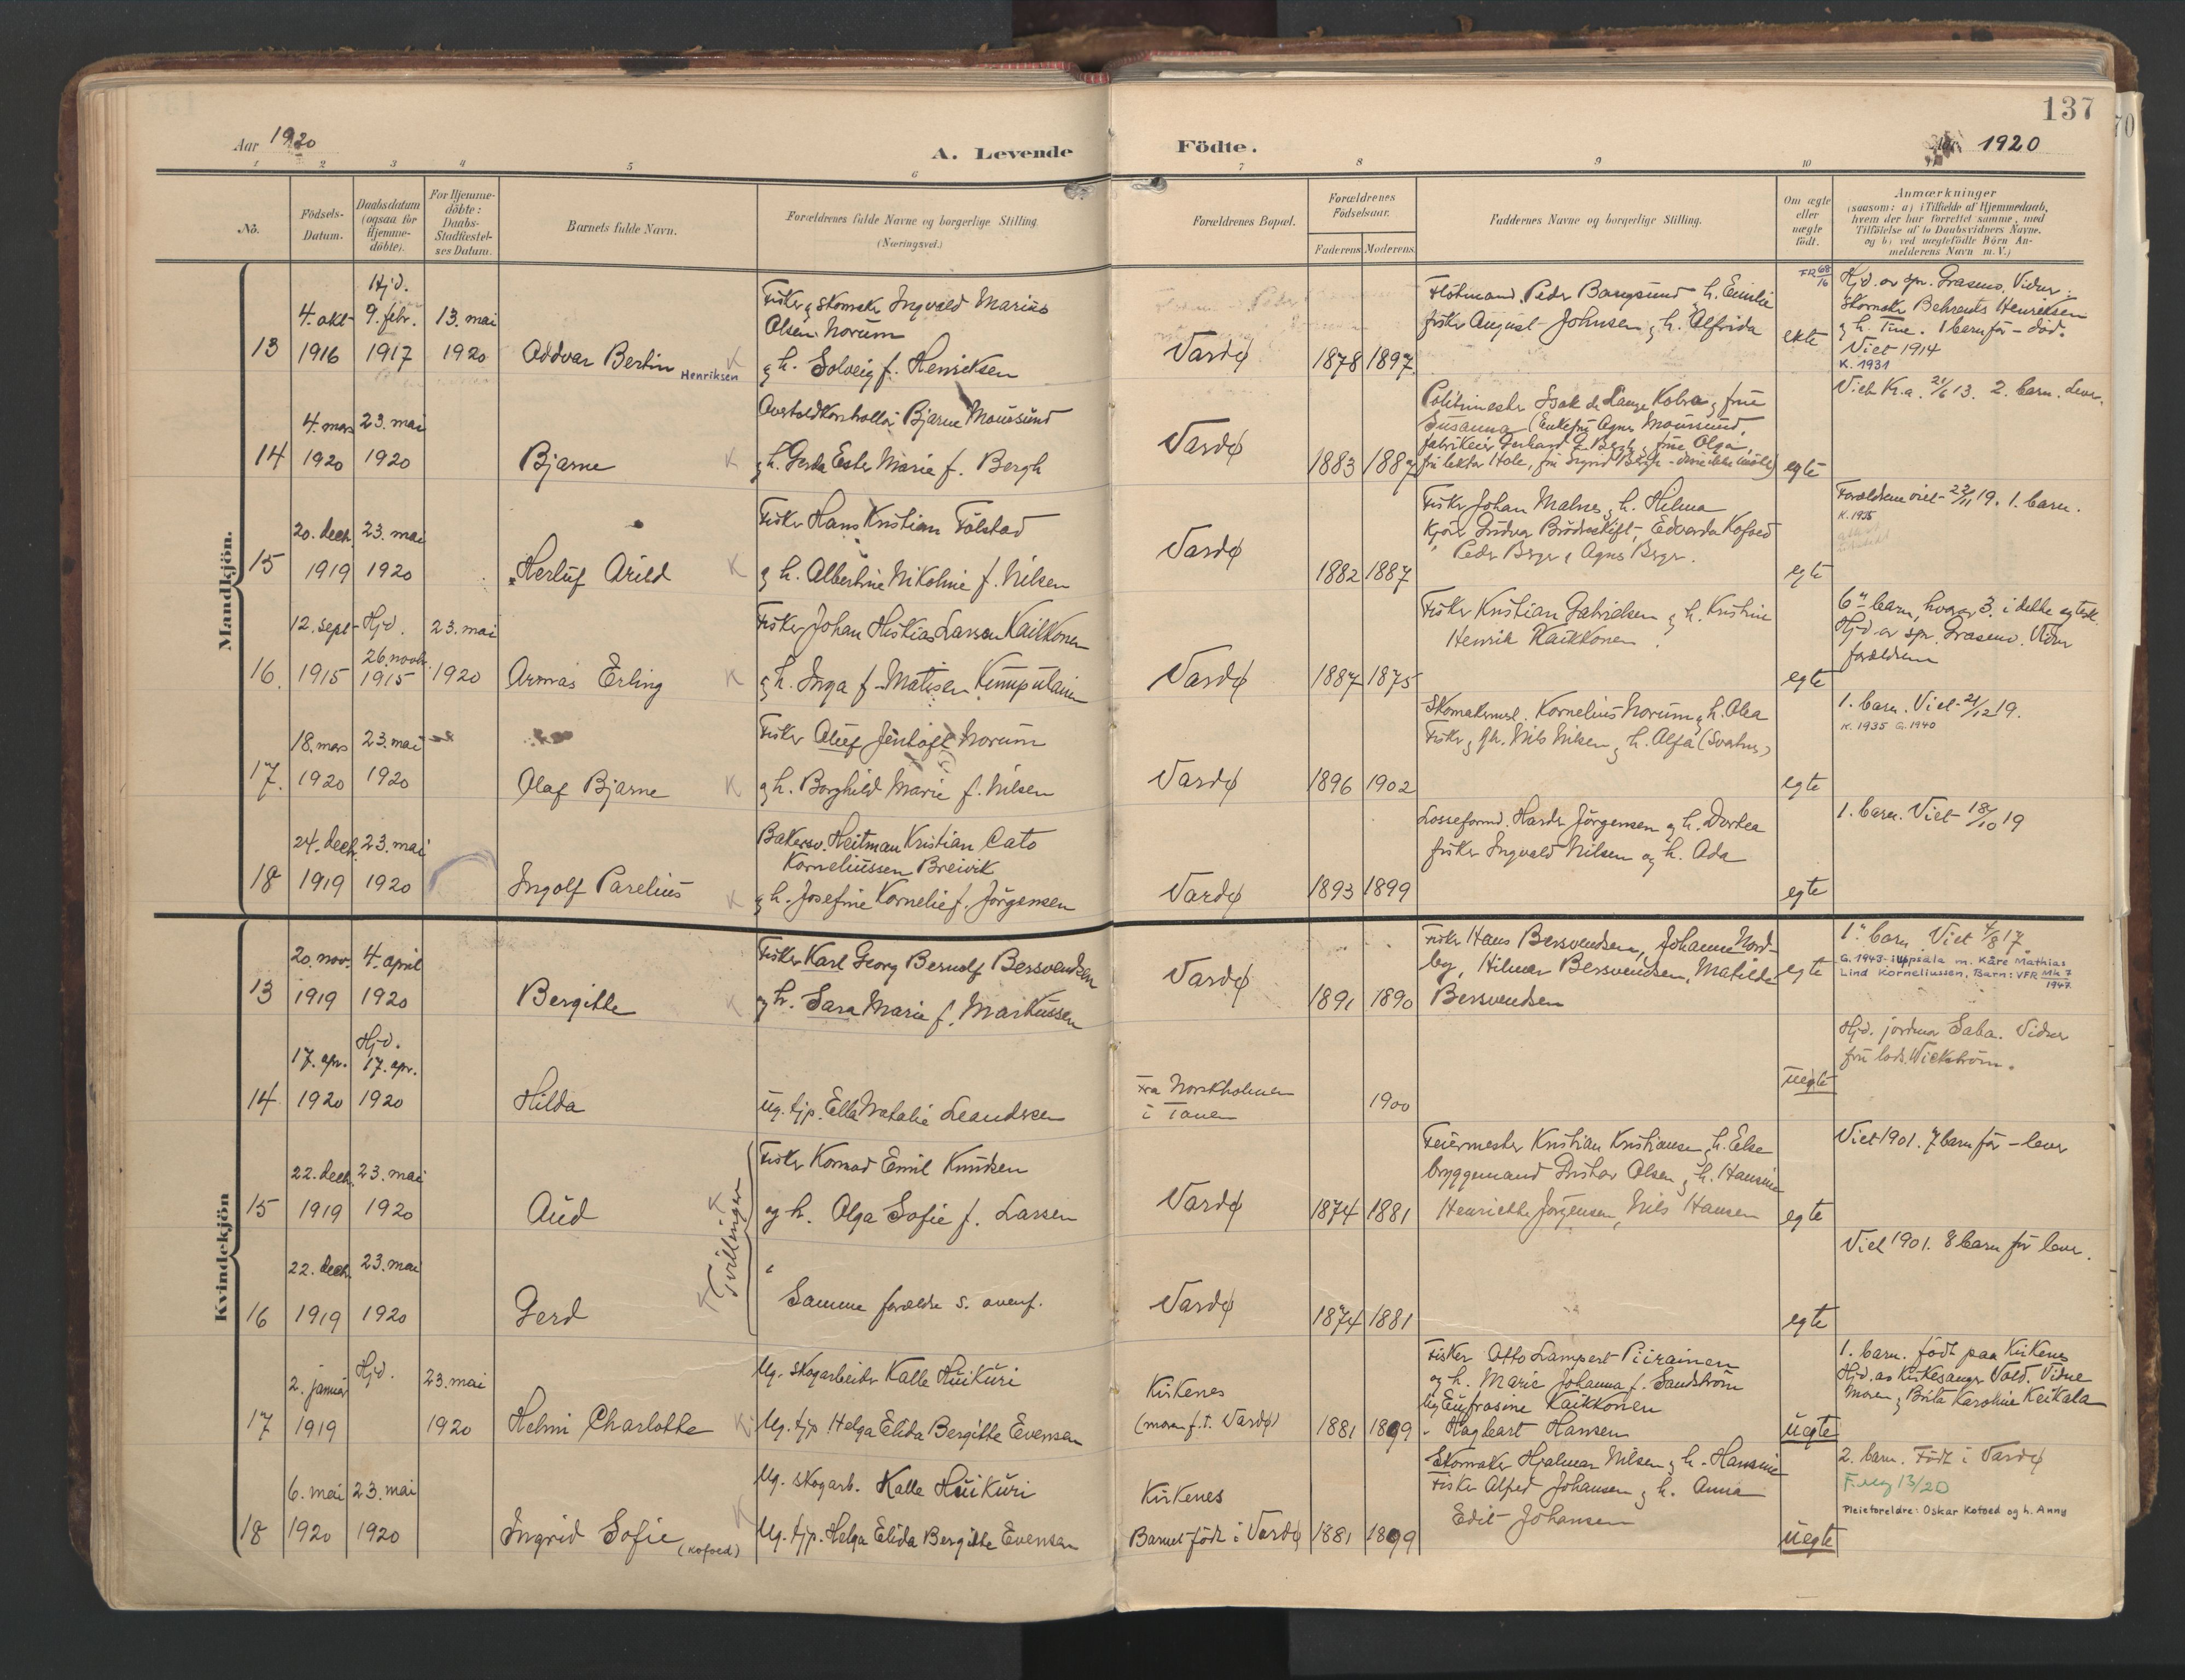 137
Aar 1920
A. Levende Födte.
1920
1 2 3 4 5 6 7 8 9 10
No.
Födsels-Datum.
Daabsdatum (ogsaa for Hjemme-döbte).
For Hjemme-döbte: Daabs-Stadfæstel-ses Datum.
Barnets fulde Navn.
Forældrenes fulde Navne og borgerlige Stilling. (Næringsvei.)
Forældrenes Bopæl.
Forældrenes Födselsaar.
Faderens Moderens
Faddernes Navne og borgerlige Stilling.
Om ægte eller uægte födt.
Anmærkninger
(saasom: a) i Tilfælde af Hjemmedaab,
hvem der har forrettet samme, med
Tilföielse af to Daabsvidners Navne,
og b) ved uægtefödte Börn An-
melderens Navn m. V.)
Mandkjön.
13
4. okt 1916
Hjd. 9. febr. 1917
13. mai 1920
Oddvar Bertin
Henriksen
K
Fisker og skomaker Ingvald Marius
Olsen Norum
og h. Solveig f. Henriksen
Vardø
1878 1897
Peder Bangsund og h. Emilie
fisker August Johnsen og h. Alfrida
ekte
FR 68/16
Hjd. av spr. Grasmo. Vidner:
Skomaker Behrents Henriksen
og h. Tine. 1 barn før - død.
Viet 1914
K. 1931
14
4. mars 1920
23. mai 1920
Bjarne
K
Bjarne Moursund
og h. Gerda Ester Marie f. Bergh
Vardø
1883 1889
Politimester Isak de Lange Kobro og frue
Susanna (Enkefru Agnes Moursund,
fabrikeier Gerhard L. Bergh og frue Olga,
fru lektor Hole, fru Sigrid Bergh
egte
Viet Kr.a. 21/6 13. 2. barn. Lever.
15
20. decb. 1919
23. mai 1920
Herluf Arild
K
Fisker Hans Kristian Folstad
og h. Albertine Nikoline f. Nilsen
Vardø
1882 1887
Fisker Johan Malnes og h. Hilma
Kjør. Gudvor Brodreskift, Edvarda Kofoed
Peder Berger, Agnes Berger.
egte
Forældrene viet 22/11 19. 1. barn.
K. 1935
16.
12. sept 1915
Hjd. 26. novb. 1915
23. mai 1920
Armas Erling
K
Fisker Johan Hiskias Larsen Kaikkonen
og h. Inga f. Matisen Kumpulainen
Vardø
1887 1875
Fisker Kristian Gabrielsen og h. Kristine
Henrik Kaikkonen.
egte
6te barn, hvorav 3. i dette egtesk.
Hjd av spr. Grasmo. Vidner
forældrene
17.
18. mars 1920
23. mai 1920
Olaf Bjarne
K
Fisker Oluf Jentoft Norum
og h. Borghild Marie f. Nilsen
Vardø
1896 1902
Skomakermst. Kornelius Norum og h. Olea
Fisker og gh. Nils Nilsen og h. Alfa (Svartnes)
egte
1. barn. Viet 21/12 19.
K. 1935 G. 1940
18
24. decb. 1919
23. mai 1920
Ingolf Parelius
K
Bakersv. Heitman Kristian Cato
Korneliussen Breivik
og h. Josefine Kornelie f. Jörgensen
Vardø
1893 1899
Losseformd. Harder Jörgensen og h. Dortea
fisker Ingvald Nilsen og h. Ada
egte
1. barn. Viet 18/10 19
Kvindekjön
13
20. nov. 1919
4. april 1920
Bergitte
K
Fisker Karl Georg Bernolf Bersvendsen
og h. Sara Marie f. Markussen
Vardø
1891 1890
Fisker Hans Bersvendsen, Johanne Nord-
by, Hilmar Bersvendsen, Matilde
Bersvendsen
egte
1. barn Viet 4/8 17.
G. 1943 i Uppsala m. Kåre Mathias
Lind Korneliussen, Barn: VFR Mk 7/1947
14
17. apr. 1920
Hjd. 17. apr. 1920
Hilda
Ug. tjp. Ella Natalie Leandersen
Fra Norskholmen
i Tanen
1900
uegte
Hjd. jordmor Saba. Vidner
fru lods. Wickström.
15
22. decb. 1919
23. mai 1920
Aud
K
Tvillinger
Fisker Konrad Emil Knudsen
og h. Olga Sofie f. Larsen
Vardø
1874 1881
Feiermester Kristian Kristiansen og h. Else
bryggemand Gustav Olsen og h. Hansine
Henriette Jörgensen, Nils Hansen
egte
Viet 1901. 7 barn før - lever
16
22. decb. 1919
23. mai 1920
Gerd
K
Samme forældre s. ovenf.
Vardø
1874 1881
egte
Viet 1901. 8 barn før lever.
17
2. januar 1919
Hjd.
23. mai 1920
Helmi Charlotte
K
Ug. skogarbeider Kalle Huikuri
Ug. tjp. Helga Elida Bergitte Evensen
Kirkenes
(moren f.t. Vardø)
1881 1899
Fisker Otto Lampert Piirainen
og h. Marie Johanna f. Sandström
Ug. Eufrosine Kaikkonen
" Hagbart Hansen
uegte
1. barn. født paa Kirkenes
Hjd. av Kirkesanger Vold. Vidne
Moren og Brita Karoline Keikala
18
6. mai 1920
23. mai 1920
Ingrid Sofie
(Kofoed)
K
Ug. skogarb. Kalle Huikuri
Ug. tjp. Helga Elida Bergitte Evensen
Kirkenes
Barnet født i Vardø
1881 1899
Skomaker Hjalmar Nilsen og h. Hansine
Fisker Alfred Johansen og h. Anna
Edit Johansen
uegte
2. barn. Født i Vardø
F. mlg 13/20
Pleieforeldre: Oskar Kofoed og h. Anny